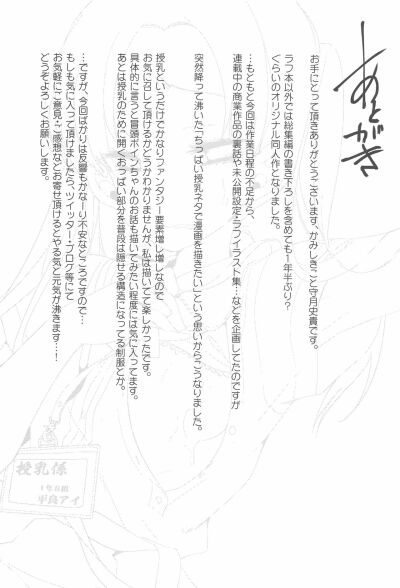 あとがき
お手にとって頂きありがとうございます、かみしきこと守月史貴です。
ラフ本以外では総集編の書き下ろしを含めても1年半ぶり?
くらいのオリジナル同人作となります。
…もともと今回は作業日程の不足から、
連載中の商業作品の裏話や未公開設定・ラフイラスト集…などを企画してたのですが
突然降って沸いた「らっぱい授乳ネタで漫画を描きたい」という思いからこうなりました。
授乳というだけでかなりファンタジー要素増し増しなので
お気に召して頂けるかどうかわかりませんが、私は描いてて楽しかったです。
具体的に言うと冒頭ボインちゃんのお話も描いてみたい程度には気に入ってます。
あとは授乳のために開くおっぱい部分を普段は隠せる構造になってる制服とか。
…ですが、今回ばかりは反響もかな～り不安なところですので…
もしも気に入って頂けましたら、ツイッター・ブログ等にて
お気軽にご意見・ご感想などお寄せ頂けるとやる気と元気が沸きます…!
どうぞよろしくお願いします。
授乳係
平良アイ